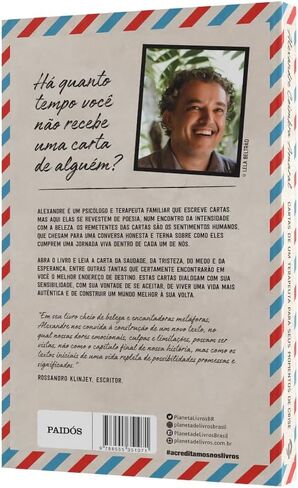 Há quanto
tempo você
não recebe
uma carta
de alguém?
© LÉLA BELTRÃO
ALEXANDRE É UM PSICÓLOGO E TERAPEUTA FAMILIAR QUE ESCREVE CARTAS.
MAS AQUI ELAS SE REVESTEM DE POESIA, NUM ENCONTRO DA INTENSIDADE
COM A BELEZA. OS REMETENTES DAS CARTAS SÃO OS SENTIMENTOS HUMANOS,
QUE CHEGAM PARA UMA CONVERSA HONESTA E TERNA SOBRE COMO ELES
CUMPREM UMA JORNADA VIVA DENTRO DE CADA UM DE NÓS.
ABRA O LIVRO E LEIA A CARTA DA SAUDADE, DA TRISTEZA, DO MEDO E DA
ESPERANÇA, ENTRE OUTRAS TANTAS QUE CERTAMENTE ENCONTRARÃO EM
VOCÊ O MELHOR ENDEREÇO DE DESTINO. ESTAS CARTAS DIALOGAM COM SUA
SENSIBILIDADE, COM SUA VONTADE DE SE ACEITAR, DE VIVER UMA VIDA MAIS
AUTÊNTICA E DE CONSTRUIR UM MUNDO MELHOR À SUA VOLTA.
"Em seu livro cheio de beleza e encantadoras metáforas,
Alexandre nos convida à construção de um novo texto, no
qual nossas dores emocionais, culpas e limitações, possam ser
vistas, não como o capítulo final de nossa história, mas como os
textos iniciais de uma vida repleta de possibilidades promessas e
significados."
ROSSANDRO KLINJEY, ESCRITOR.
PAIDÓS
PlanetaLivrosBR
planetadelivrosbrasil
PlanetadeLivrosBrasil
planetadelivros.com.br
#acreditamosnoslivros
CARTAS DE UM TERAPEUTA PARA SEUS MOMENTOS DE CRISE